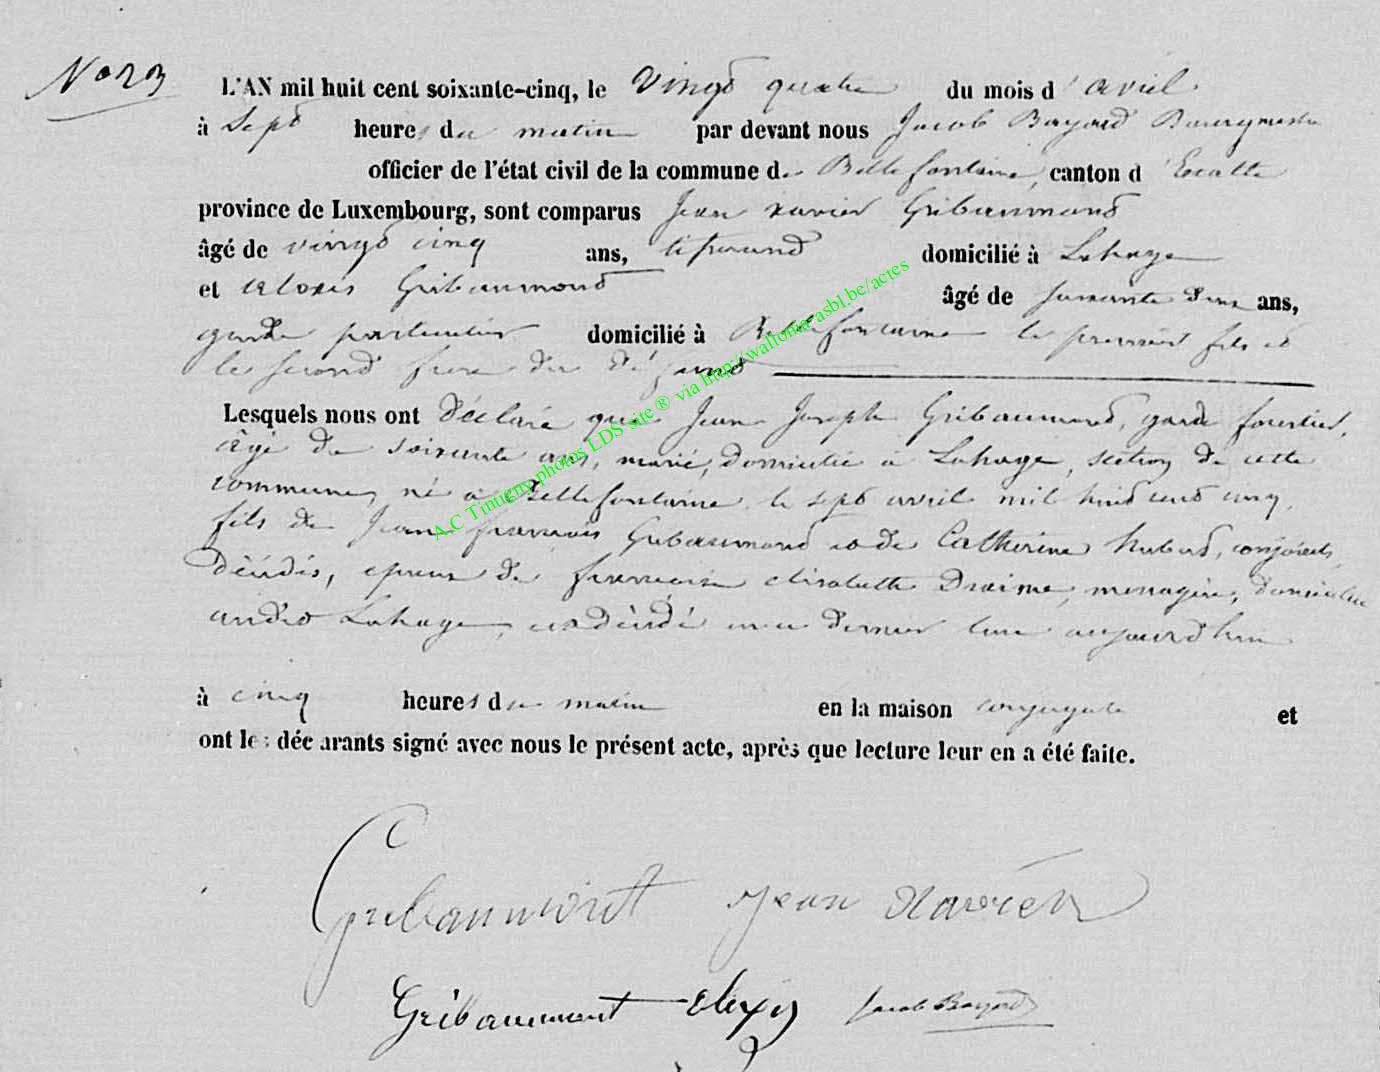 N° 23
L'AN mil huit cent soixante-cinq, le vingt quatre du mois d'avril
à Sept heures du matin par devant nous Jacob Bayard Bourgmestre
officier de l'état civil de la commune de Bellefontaine, canton d'Etalle
province de Luxembourg, sont comparus Jean xavier Gribaumont
âgé de vingt cinq ans, tisserand domicilié à Lahage
et Alexis Gribaumont âgé de soixante deux ans,
garde particulier domicilié à Bellefontaine le premier fils et
le second frere du défunt
Lesquels nous ont déclaré que Jean Joseph Gribaumont, garde forestier,
âgé de soixante ans, marié, domicilié à Lahage, section de cette
commune, né à Bellefontaine le sept avril mil huit cent cinq,
fils de Jean françois Gribaumont et de Catherine hubert, conjoints
décédés, epoux de françoise elisabeth Draime, menagère, domiciliée
audit Lahage, est décédé aujourd'hui
à cinq heures du matin en la maison conjugale et
ont les déclarants signé avec nous le présent acte, après que lecture leur en a été faite.
Gribaumont Jean Xavier
Gribaumont Alexis Jacob Bayard
A.C Tintigny photos LDS site ® via http://wallonia-asbl.be/actes